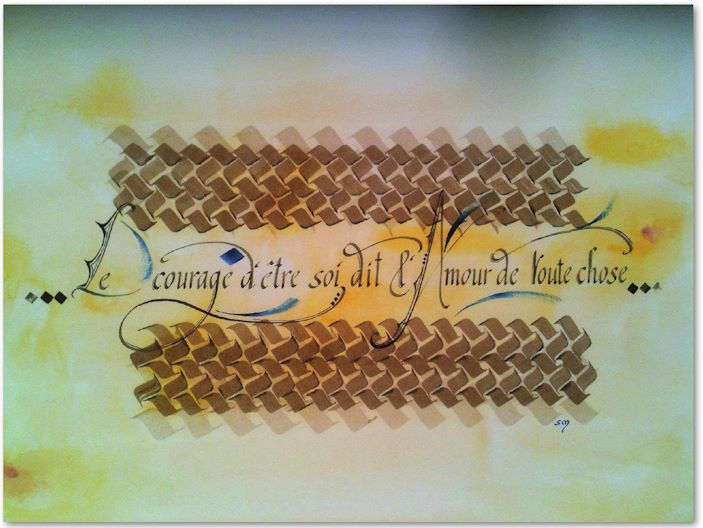 Le courage d'être soi dit l'Amour de toute chose...
SM